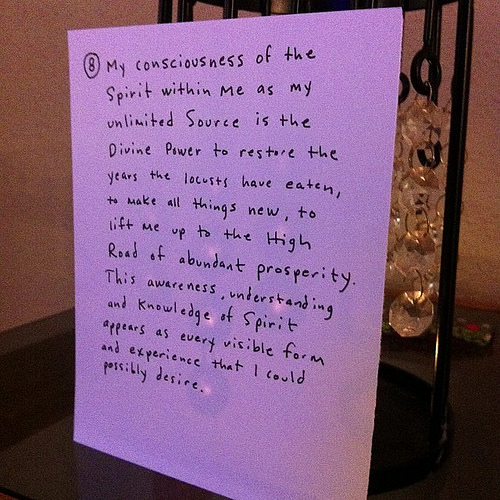 ⑧ My consciousness of the
Spirit within Me as my
unlimited Source is the
Divine Power to restore the
years the locusts have eaten,
to make all things new, to
lift me up to the High
Road of abundant prosperity.
This awareness, understanding
and Knowledge of Spirit
appears as every visible form
and experience that I could
possibly desire.